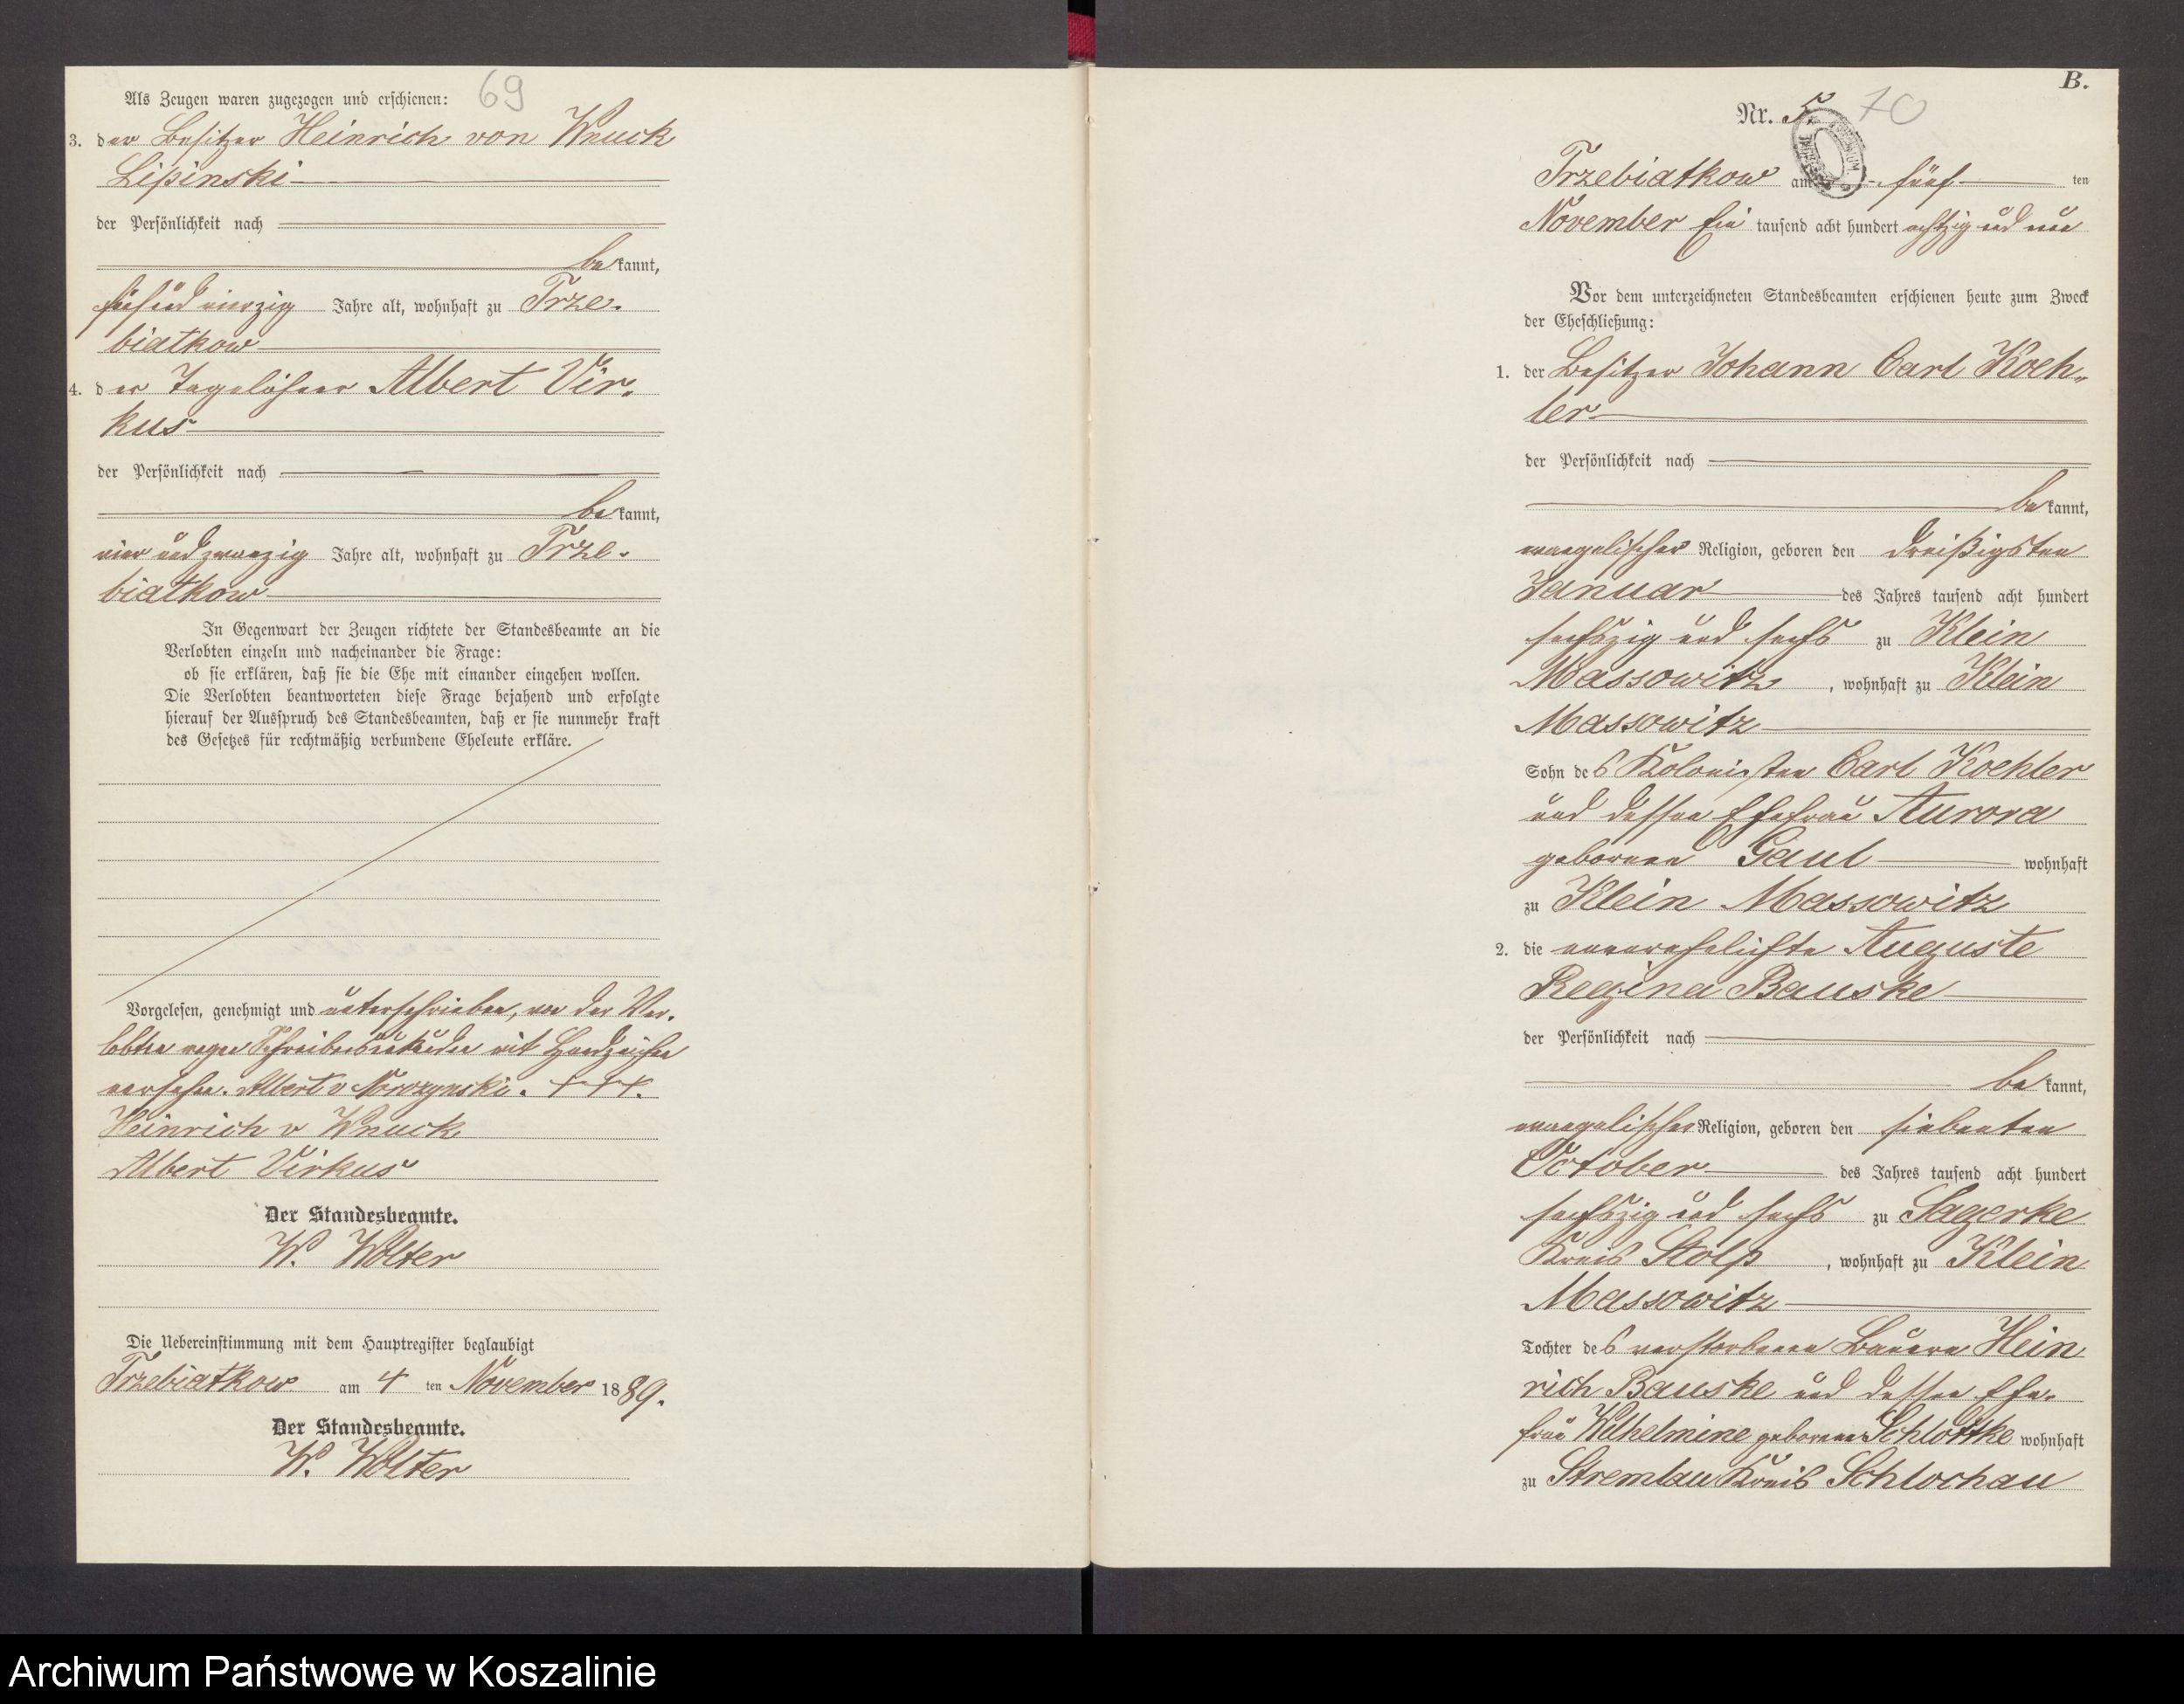 69
Als Zeugen waren zugezogen und erschienen:
3. der Besitzer Heinrich von Wnuck
Lipinski
der Persönlichkeit nach
bekannt,
fünf und vierzig Jahre alt, wohnhaft zu Trze-
biatkow
4. der Tagelöhner Albert Vir-
kus
der Persönlichkeit nach
bekannt,
vier und zwanzig Jahre alt, wohnhaft zu Trze-
biatkow
In Gegenwart der Zeugen richtete der Standesbeamte an die
Verlobten einzeln und nacheinander die Frage:
ob sie erklären, daß sie die Ehe mit einander eingehen wollen.
Die Verlobten beantworteten diese Frage bejahend und erfolgte
hierauf der Ausspruch des Standesbeamten, daß er sie nunmehr kraft
des Gesetzes für rechtmäßig verbundene Eheleute erkläre.
Vorgelesen, genehmigt und unterschrieben, von der Ver-
lobten wegen Schreibensunkunde mit Handzeichen
versehen. Albert v +++.
Heinrich v Wnuck
Albert Virkus
Der Standesbeamte.
W. Wolter
Die Uebereinstimmung mit dem Hauptregister beglaubigt
Trzebiatkow am 4 ten November 1889.
Der Standesbeamte.
W. Wolter
B.
Nr. 5. 70
Trzebiatkow am fünf ten
November Ein tausend acht hundert achtzig und neun
Vor dem unterzeichneten Standesbeamten erschienen heute zum Zweck
der Eheschließung:
1. der Besitzer Johann Carl Koeh-
ler
der Persönlichkeit nach
bekannt,
evangelischer Religion, geboren den dreißigsten
Januar des Jahres tausend acht hundert
sechszig und sechs zu Klein
Massowitz, wohnhaft zu Klein
Massowitz
Sohn des Kolonisten Carl Koehler
und dessen Ehefrau Aurora
geborenen Gaul wohnhaft
zu Klein Massowitz
2. die unverehelichte Auguste
Regina Bauske
der Persönlichkeit nach
bekannt,
evangelischer Religion, geboren den siebenten
October des Jahres tausend acht hundert
sechszig und sechs zu Sagerke
Kreis Stolp, wohnhaft zu Klein
Massowitz
Tochter des verstorbenen Bauern Hein
rich Bauske und dessen Ehe-
frau Wilhelmine geborenen Schlottke wohnhaft
zu Stremlau Kreis Schlochau
Archiwum Państwowe w Koszalinie